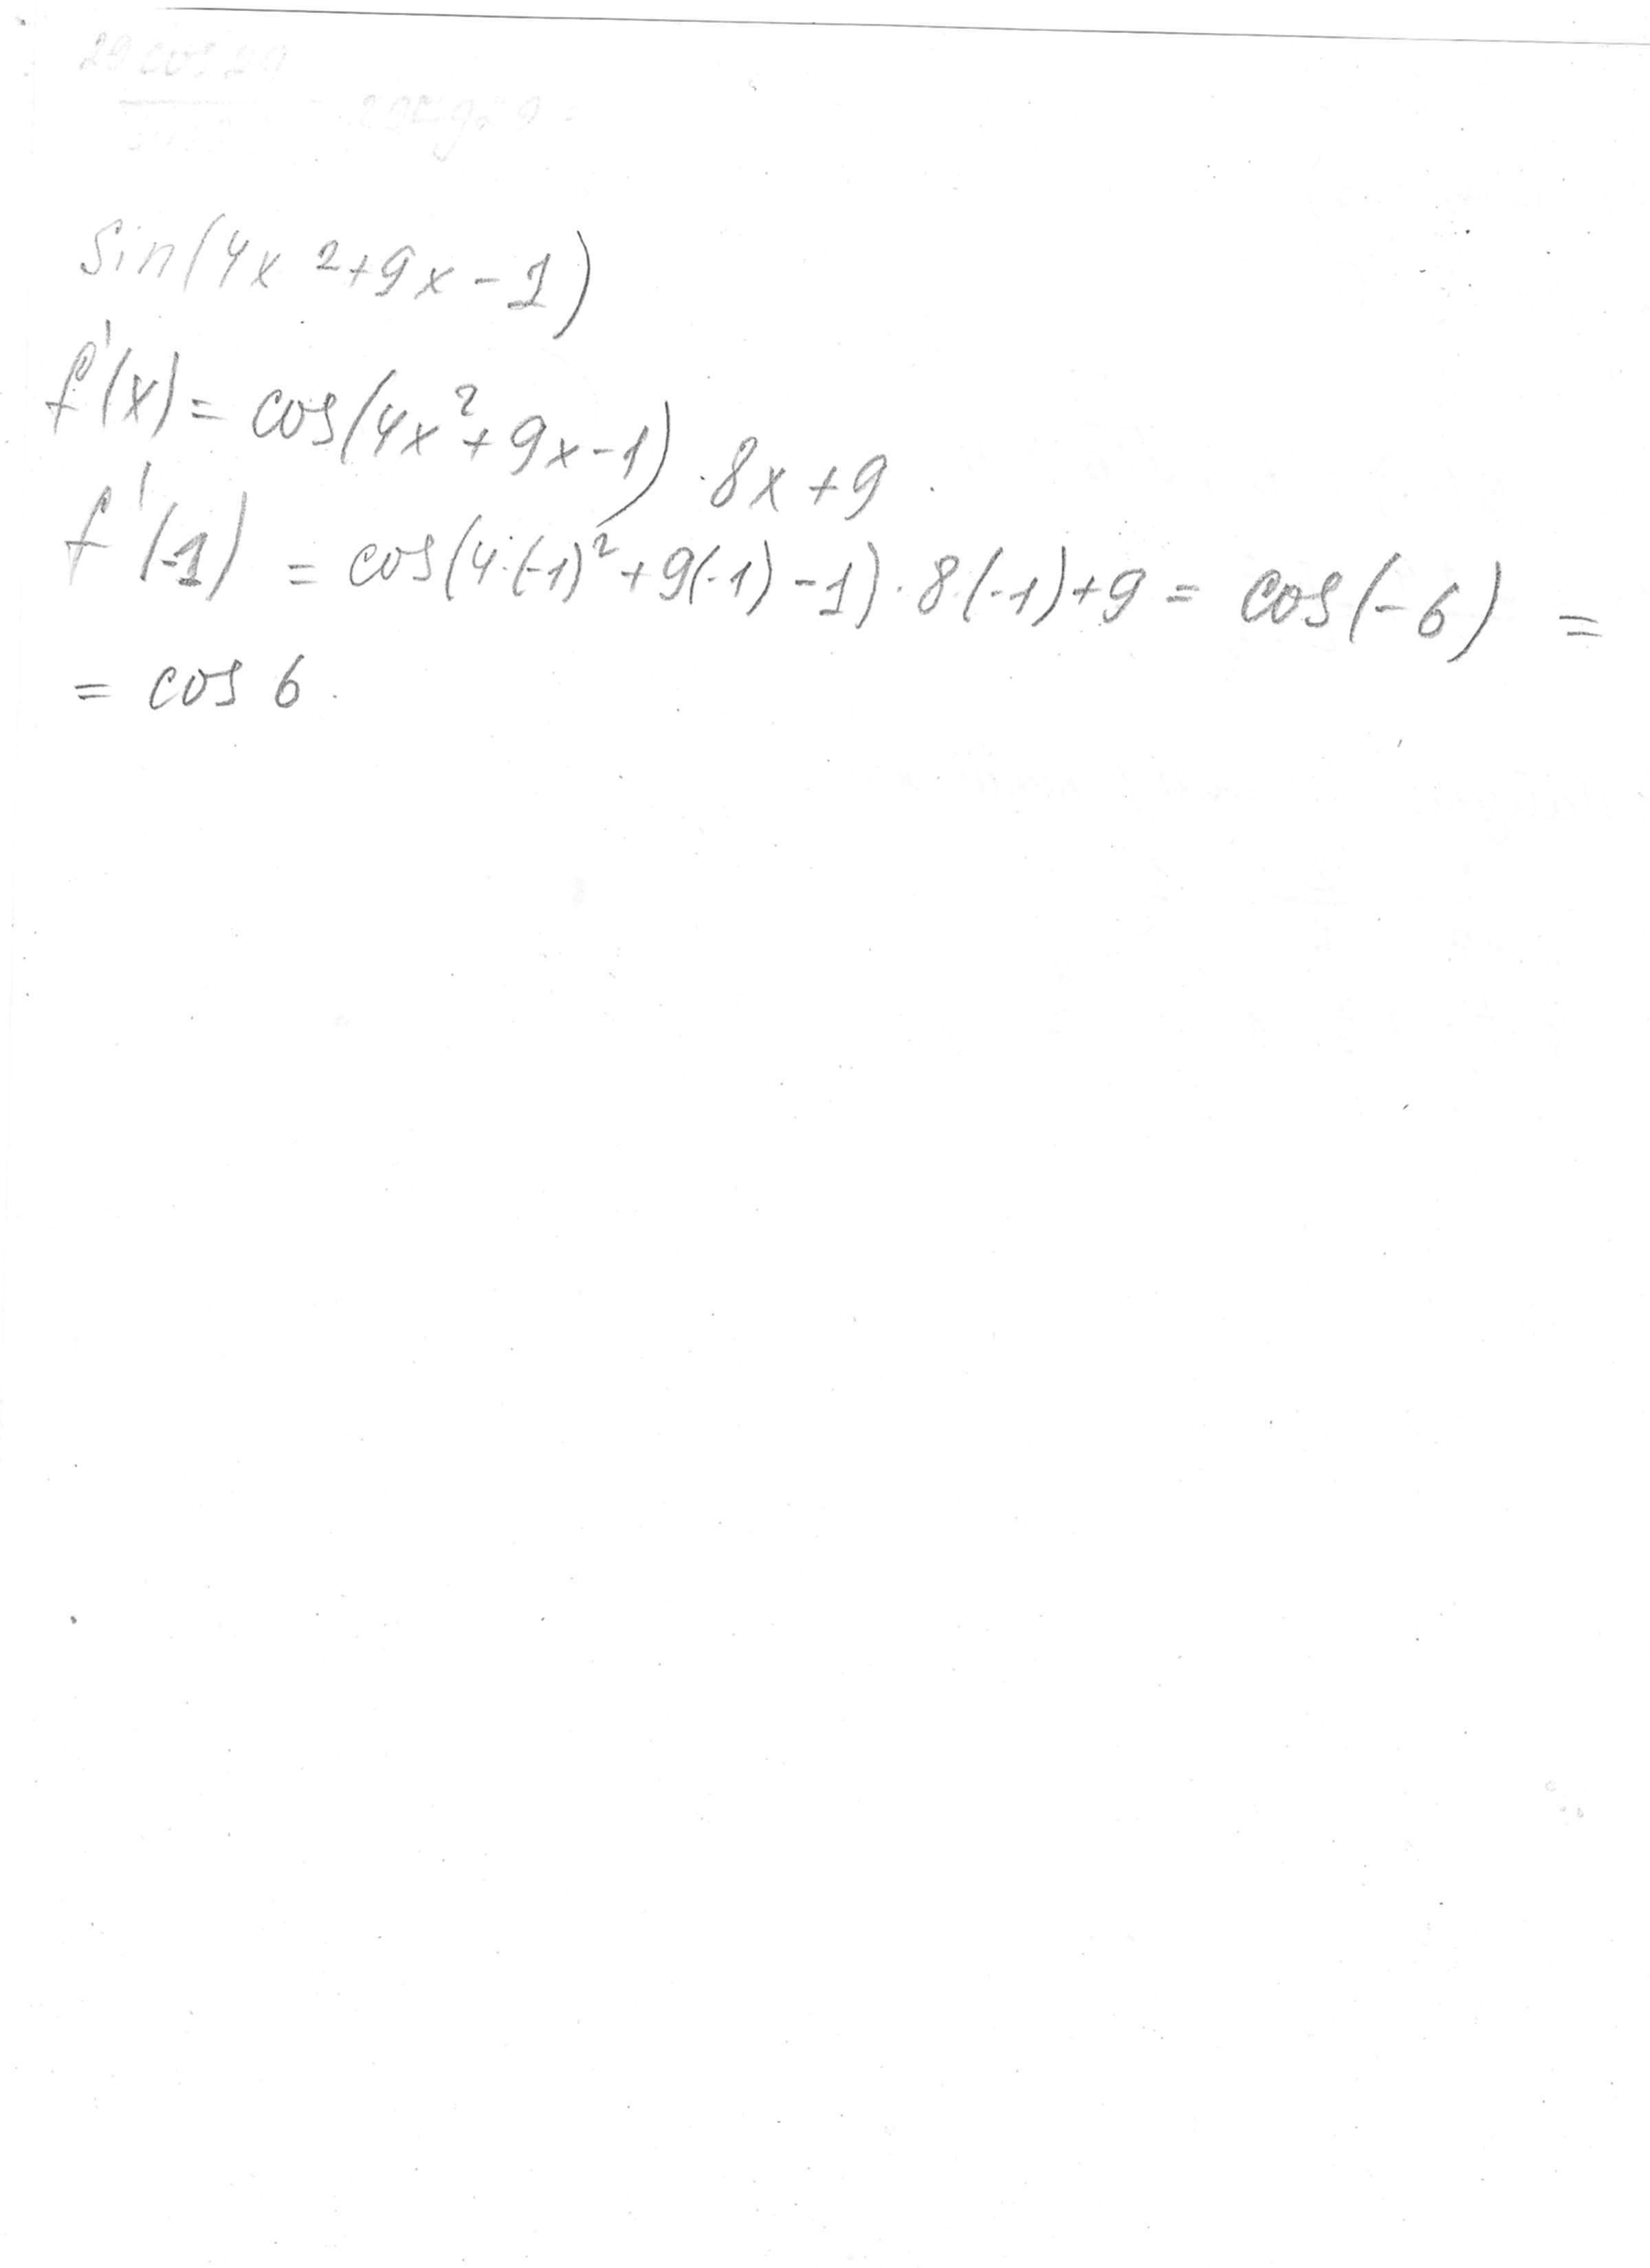 sin(4x 2+9x-1)
f'(x)= cos(4x²+9x-1)·8x+9.
f'(-1) = cos(4·(-1)²+9(-1)-1)·8(-1)+9= cos(-6) =
= cos 6.